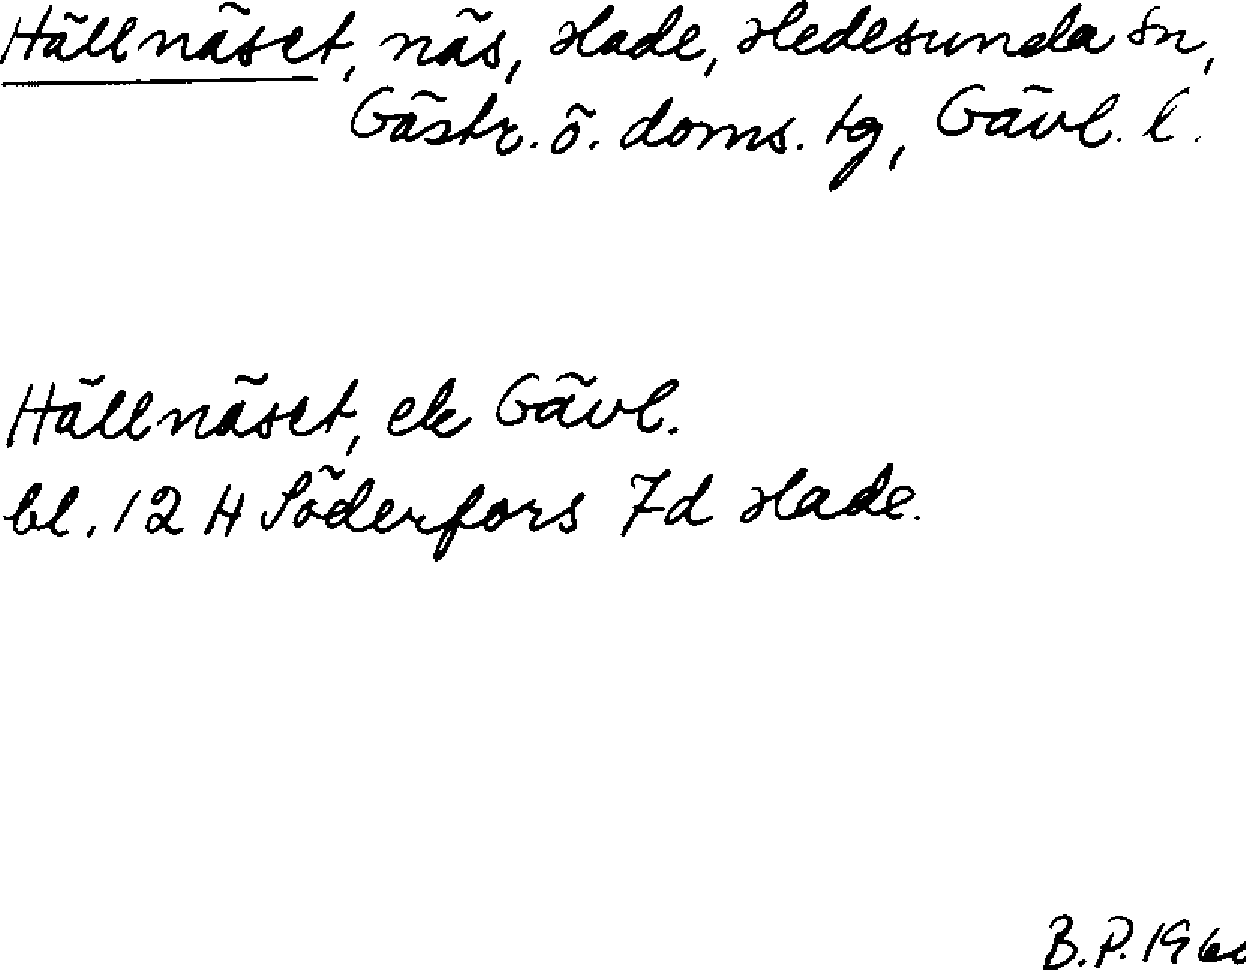 Hällnäset, näs, Hade, Hedesunda sn,
Gästr. ö. doms. tg, Gävl. l.
Hällnäset, ek Gävl.
bl. 12 H Söderfors 7d Hade.
B.P. 1960